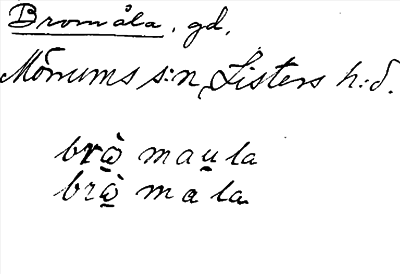 Bromåla, gd,
Mörrums s:n, Listers h:d.
brὼ̱ mau̱la
brὼ̱ mala